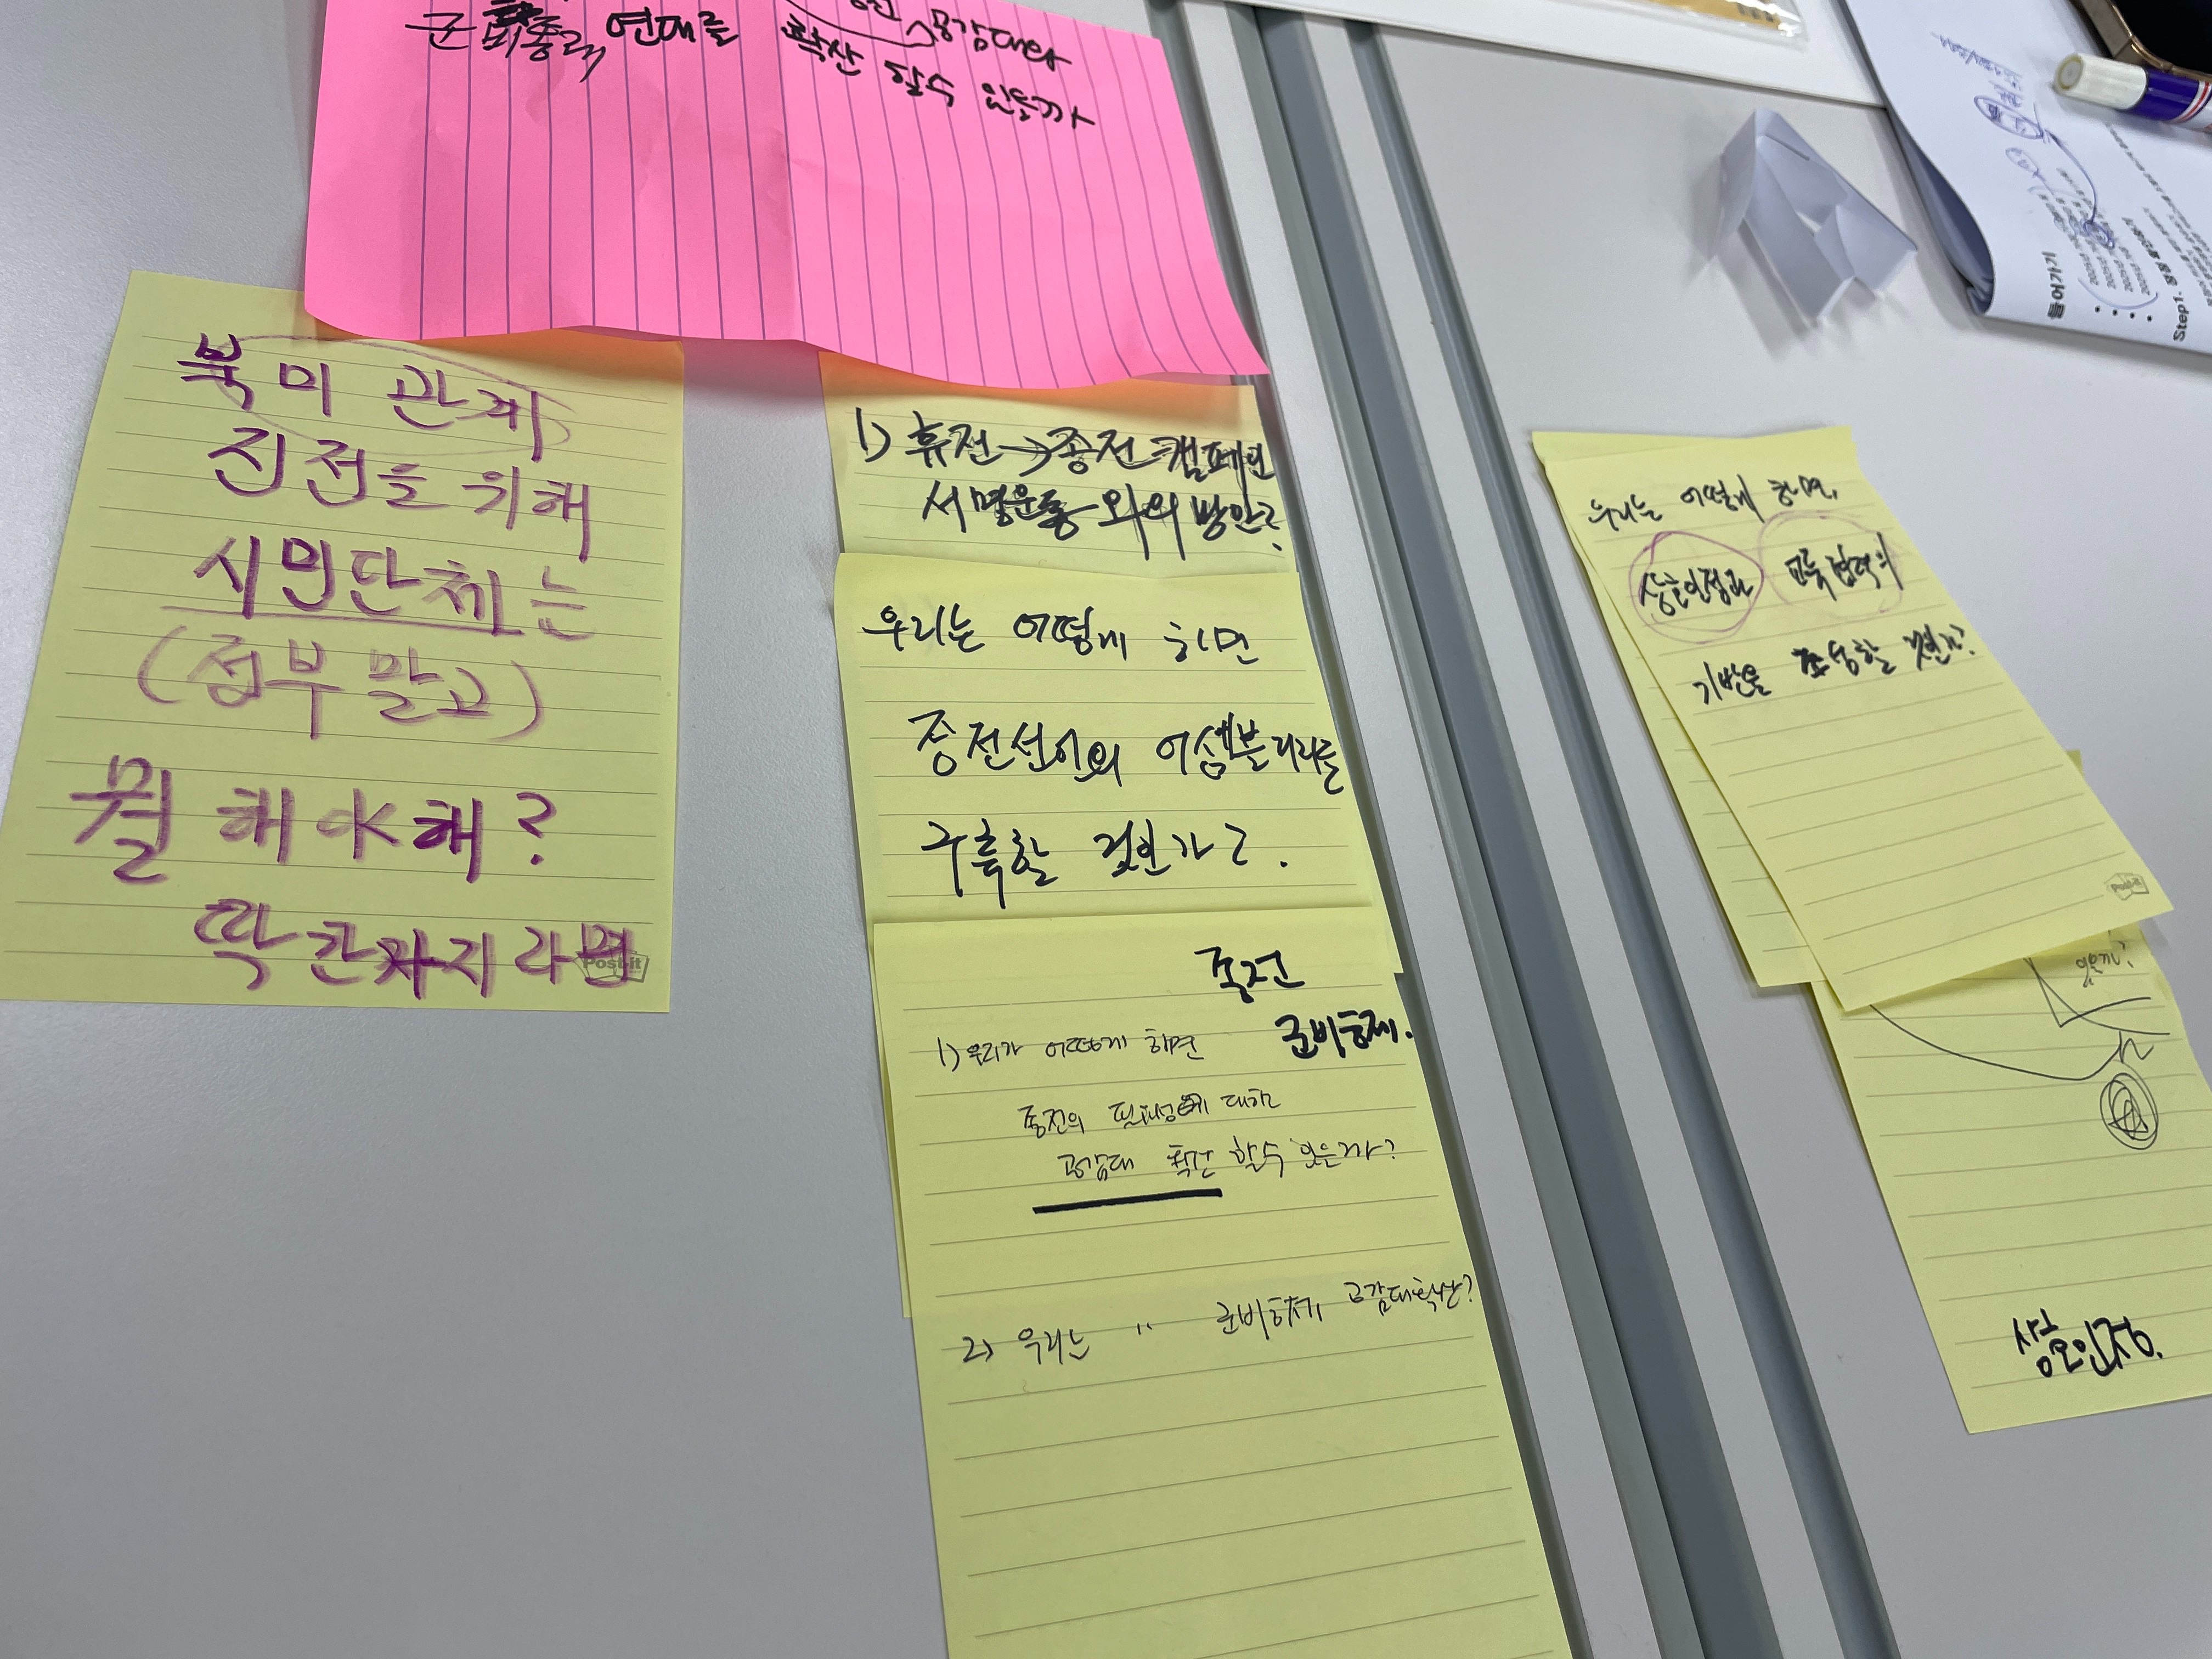 연대를
공감대와
확산 할수 있을까
북미 관계
진전을 위해
시민단체는
(정부 말고)
뭘 해야해?
딱 한가지라면
Post-it
1) 휴전→종전 캠페인
서명운동 외의 방안?
우리는 어떻게 하면
종전선언의 어셈블리지를
구축할 것인가?
종전
군비축제.
1) 우리가 어떻게 하면
종전의 필요성에 대한
공감대 확산 할수 있을까?
2) 우리는 〃 군비축제 공감대확산?
우리는 어떻게 하면,
상호인정과 교육협력의
기반을 조성할 것인가?
Post-it
있을까?
상호인정.
들어가기
Step1.